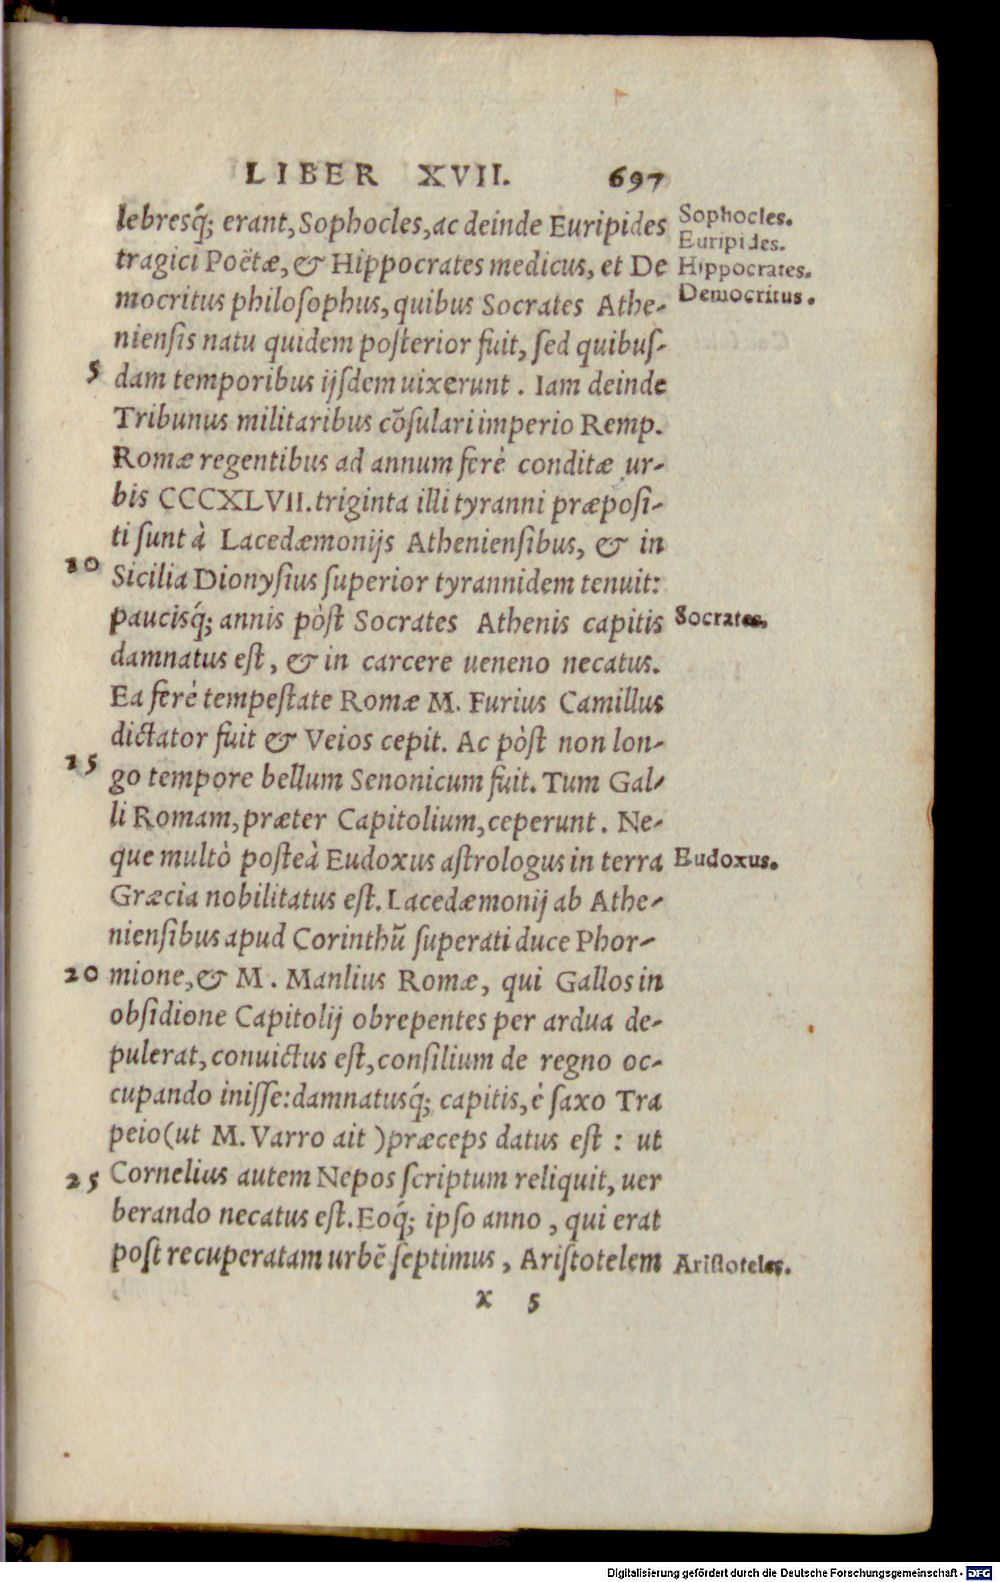 LIBER XVII. 697
lebresq́; erant, Sophocles, ac deinde Euripides
Sophocles.
Euripides.
tragici Poëtæ, & Hippocrates medicus, et De
Hippocrates.
mocritus philoſophus, quibus Socrates Athe-
Democritus.
nienſis natu quidem poſterior fuit, ſed quibuſ-
5 dam temporibus ijſdem uixerunt. Iam deinde
Tribunus militaribus cõſulari imperio Remp.
Romæ regentibus ad annum ferè conditæ ur-
bis CCCXLVII. triginta illi tyranni præpoſi-
ti ſunt à Lacedæmonijs Athenienſibus, & in
10 Sicilia Dionyſius ſuperior tyrannidem tenuit:
paucisq́; annis pòſt Socrates Athenis capitis
Socrates.
damnatus eſt, & in carcere ueneno necatus.
Ea ferè tempeſtate Romæ M. Furius Camillus
dictator fuit & Veios cepit. Ac pòſt non lon-
15 go tempore bellum Senonicum fuit. Tum Gal-
li Romam, præter Capitolium, ceperunt. Ne-
que multò poſteà Eudoxus aſtrologus in terra
Eudoxus.
Græcia nobilitatus eſt. Lacedæmonij ab Athe-
nienſibus apud Corinthũ ſuperati duce Phor-
20 mione, & M. Manlius Romæ, qui Gallos in
obſidione Capitolij obrepentes per ardua de-
pulerat, conuictus eſt, conſilium de regno oc-
cupando iniſſe: damnatusq́; capitis, è ſaxo Tra
peio (ut M. Varro ait) præceps datus eſt: ut
25 Cornelius autem Nepos ſcriptum reliquit, uer
berando necatus eſt. Eoq́; ipſo anno, qui erat
poſt recuperatam urbẽ ſeptimus, Ariſtotelem
Ariſtoteles.
x 5
Digitalisierung gefördert durch die Deutsche Forschungsgemeinschaft - DFG